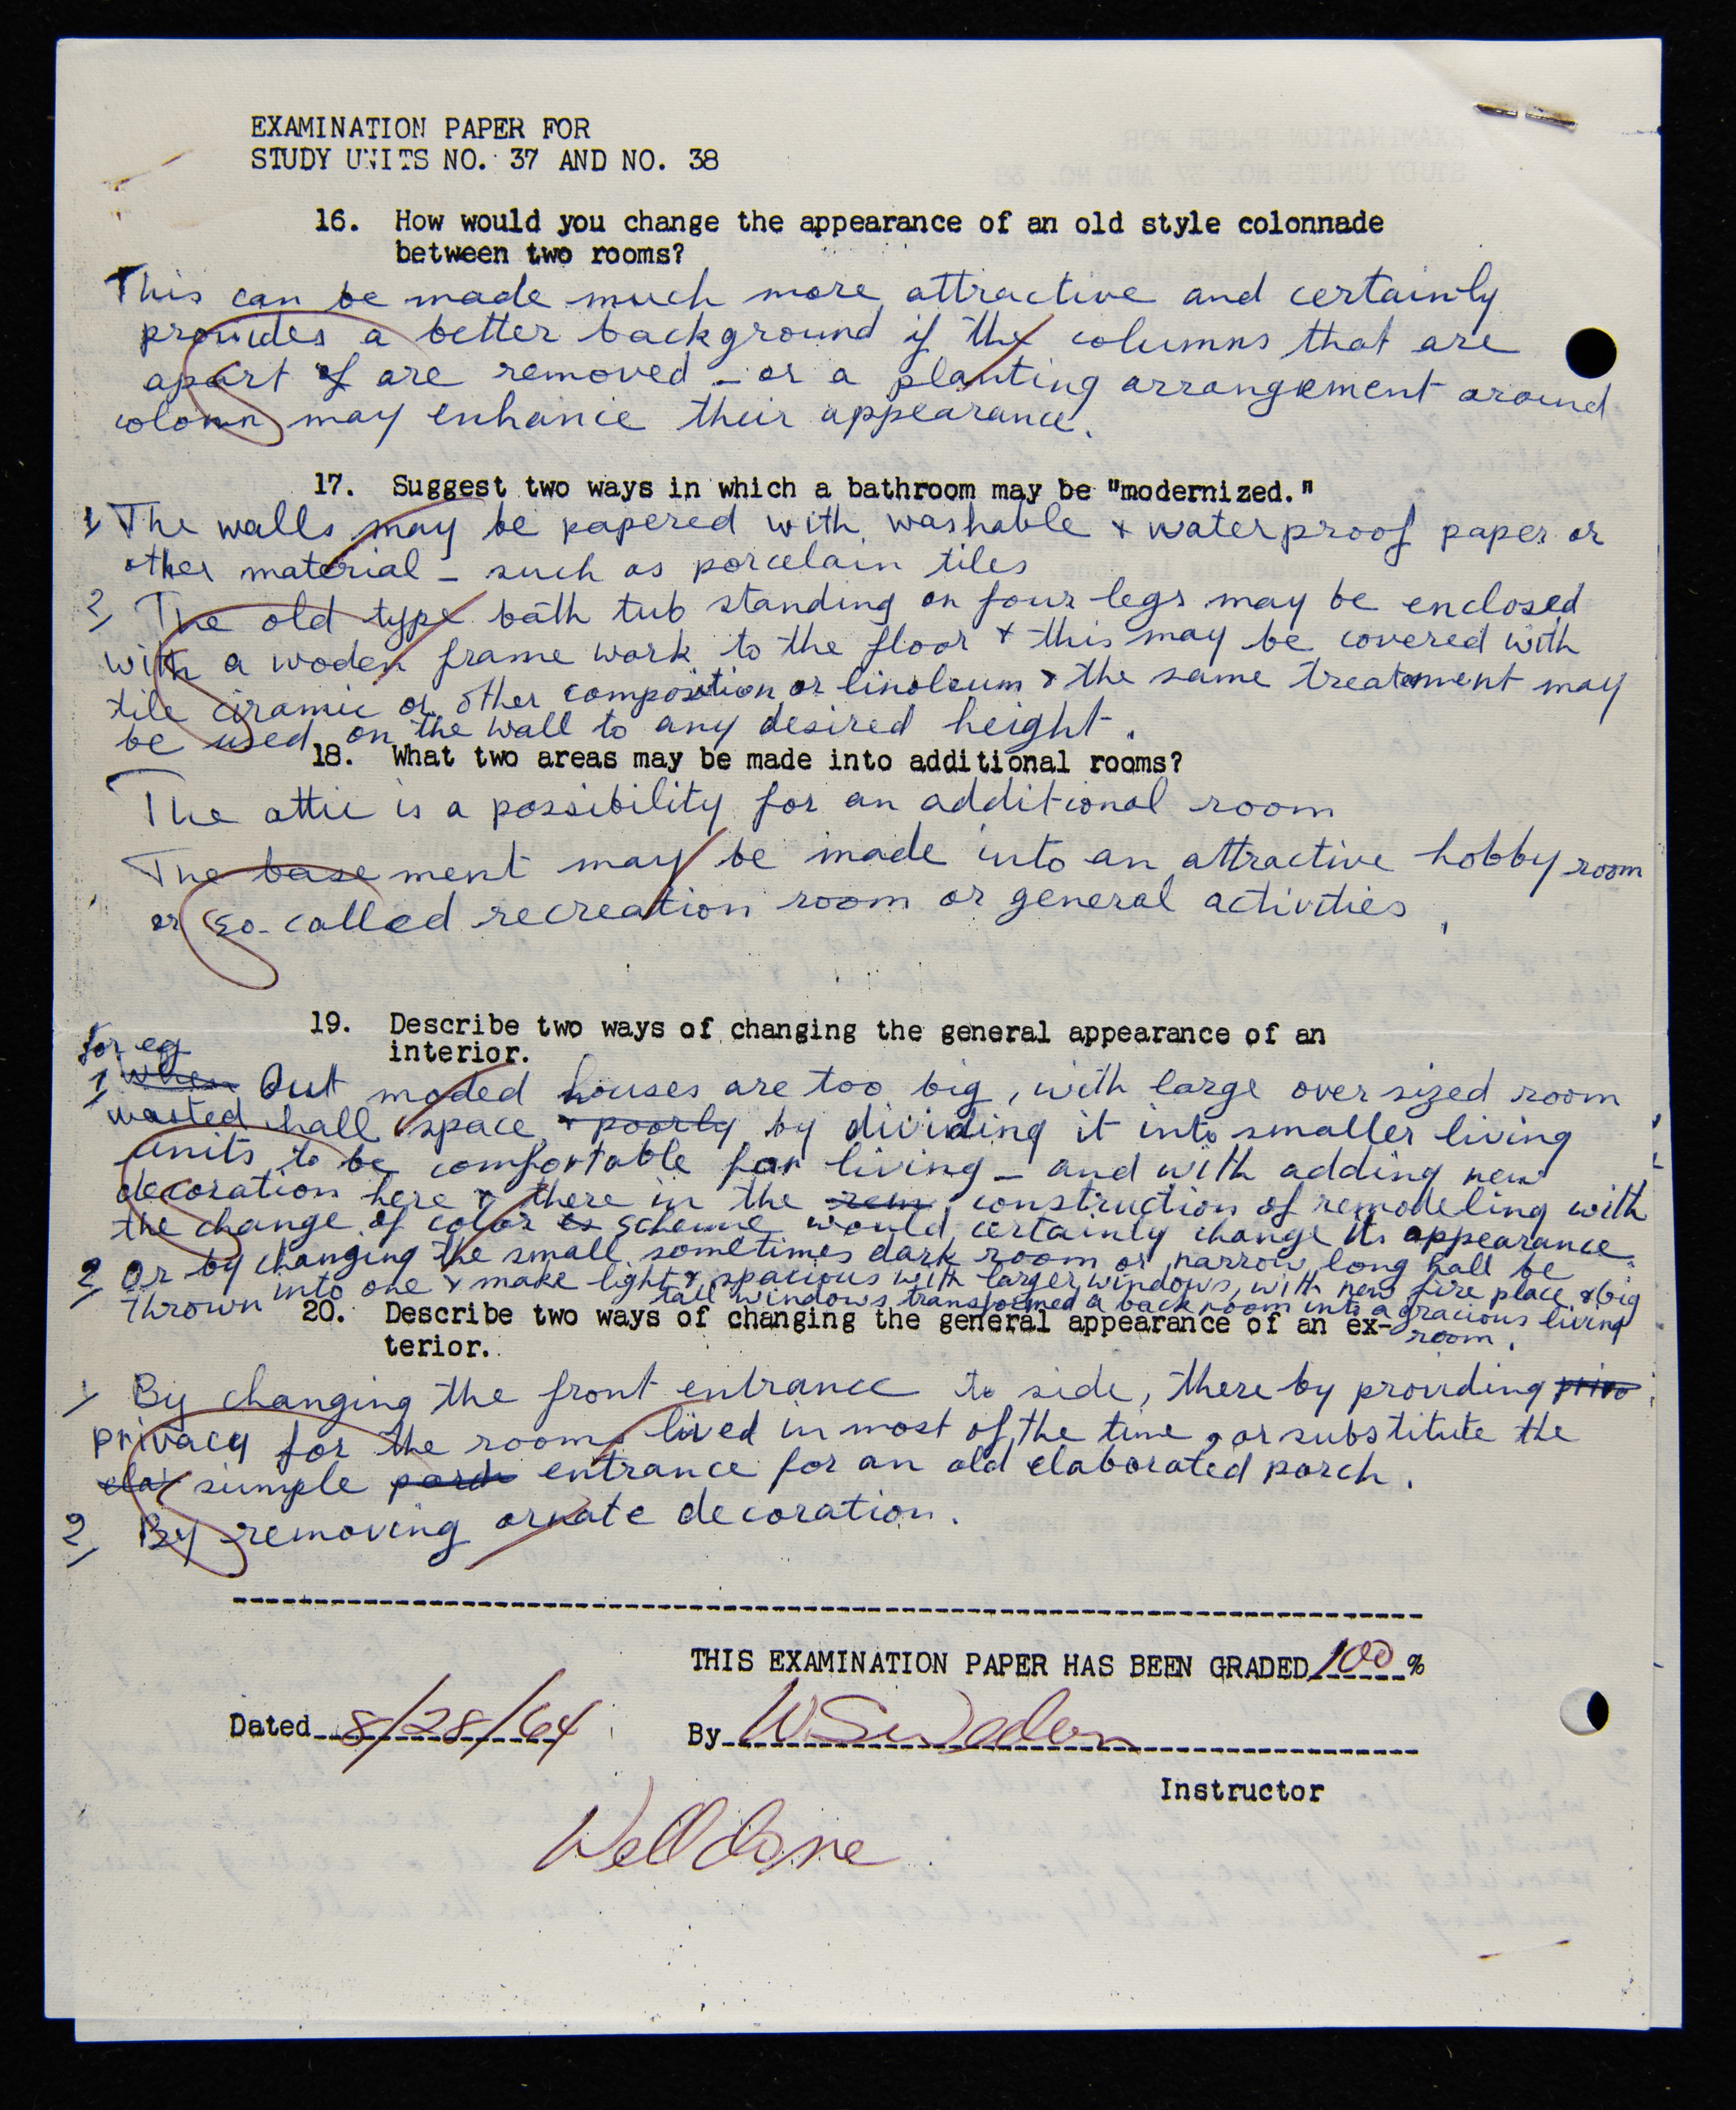 EXAMINATION PAPER FOR
STUDY UNITS NO. 37 AND NO. 38
16. How would you change the appearance of an old style colonnade
between two rooms?
This can be made much more attractive and certainly
provides a better background if the columns that are
apart of are removed - or a planting arrangement around
may enhance their appearance.
17. Suggest two ways in which a bathroom may be "modernized."
1 The walls may be papered with washable & waterproof paper or
other material - such as porcelain tiles
2, The old type bath tub standing on four legs may be enclosed
with a woden frame work to the floor & this may be covered with
tile ciramic or other composition or linoleum & the same treatement may
be used on the wall to any desired height.
18. What two areas may be made into additional rooms?
The attic is a possibility for an additional room
The basement may be made into an attractive hobby room
or so-called recreation room or general activities.
19. Describe two ways of changing the general appearance of an
interior.
for eg
1, when Out moded houses are too big, with large over sized room
wasted hall space & poorly by dividing it into smaller living
units to be comfortable for living - and with adding new
decoration here & there in the rem construction of remodeling with
the change of color scheme would certainly change its appearance.
2, Or by changing the small sometimes dark room or narrow long hall be
thrown into one & make light & spacious with larger windows, with new fire place & big
tall windows transformed a back room into a gracious living
room.
20. Describe two ways of changing the general appearance of an ex-
terior.
1, By changing the front entrance to side, there by providing priva
privacy for the rooms lived in most of the time, or substitute the
ela simple porch entrance for an old elaborated porch.
2, By removing ornate decoration.
THIS EXAMINATION PAPER HAS BEEN GRADED 100 %
Dated 8/28/64 By W. Sweden
Instructor
Well done